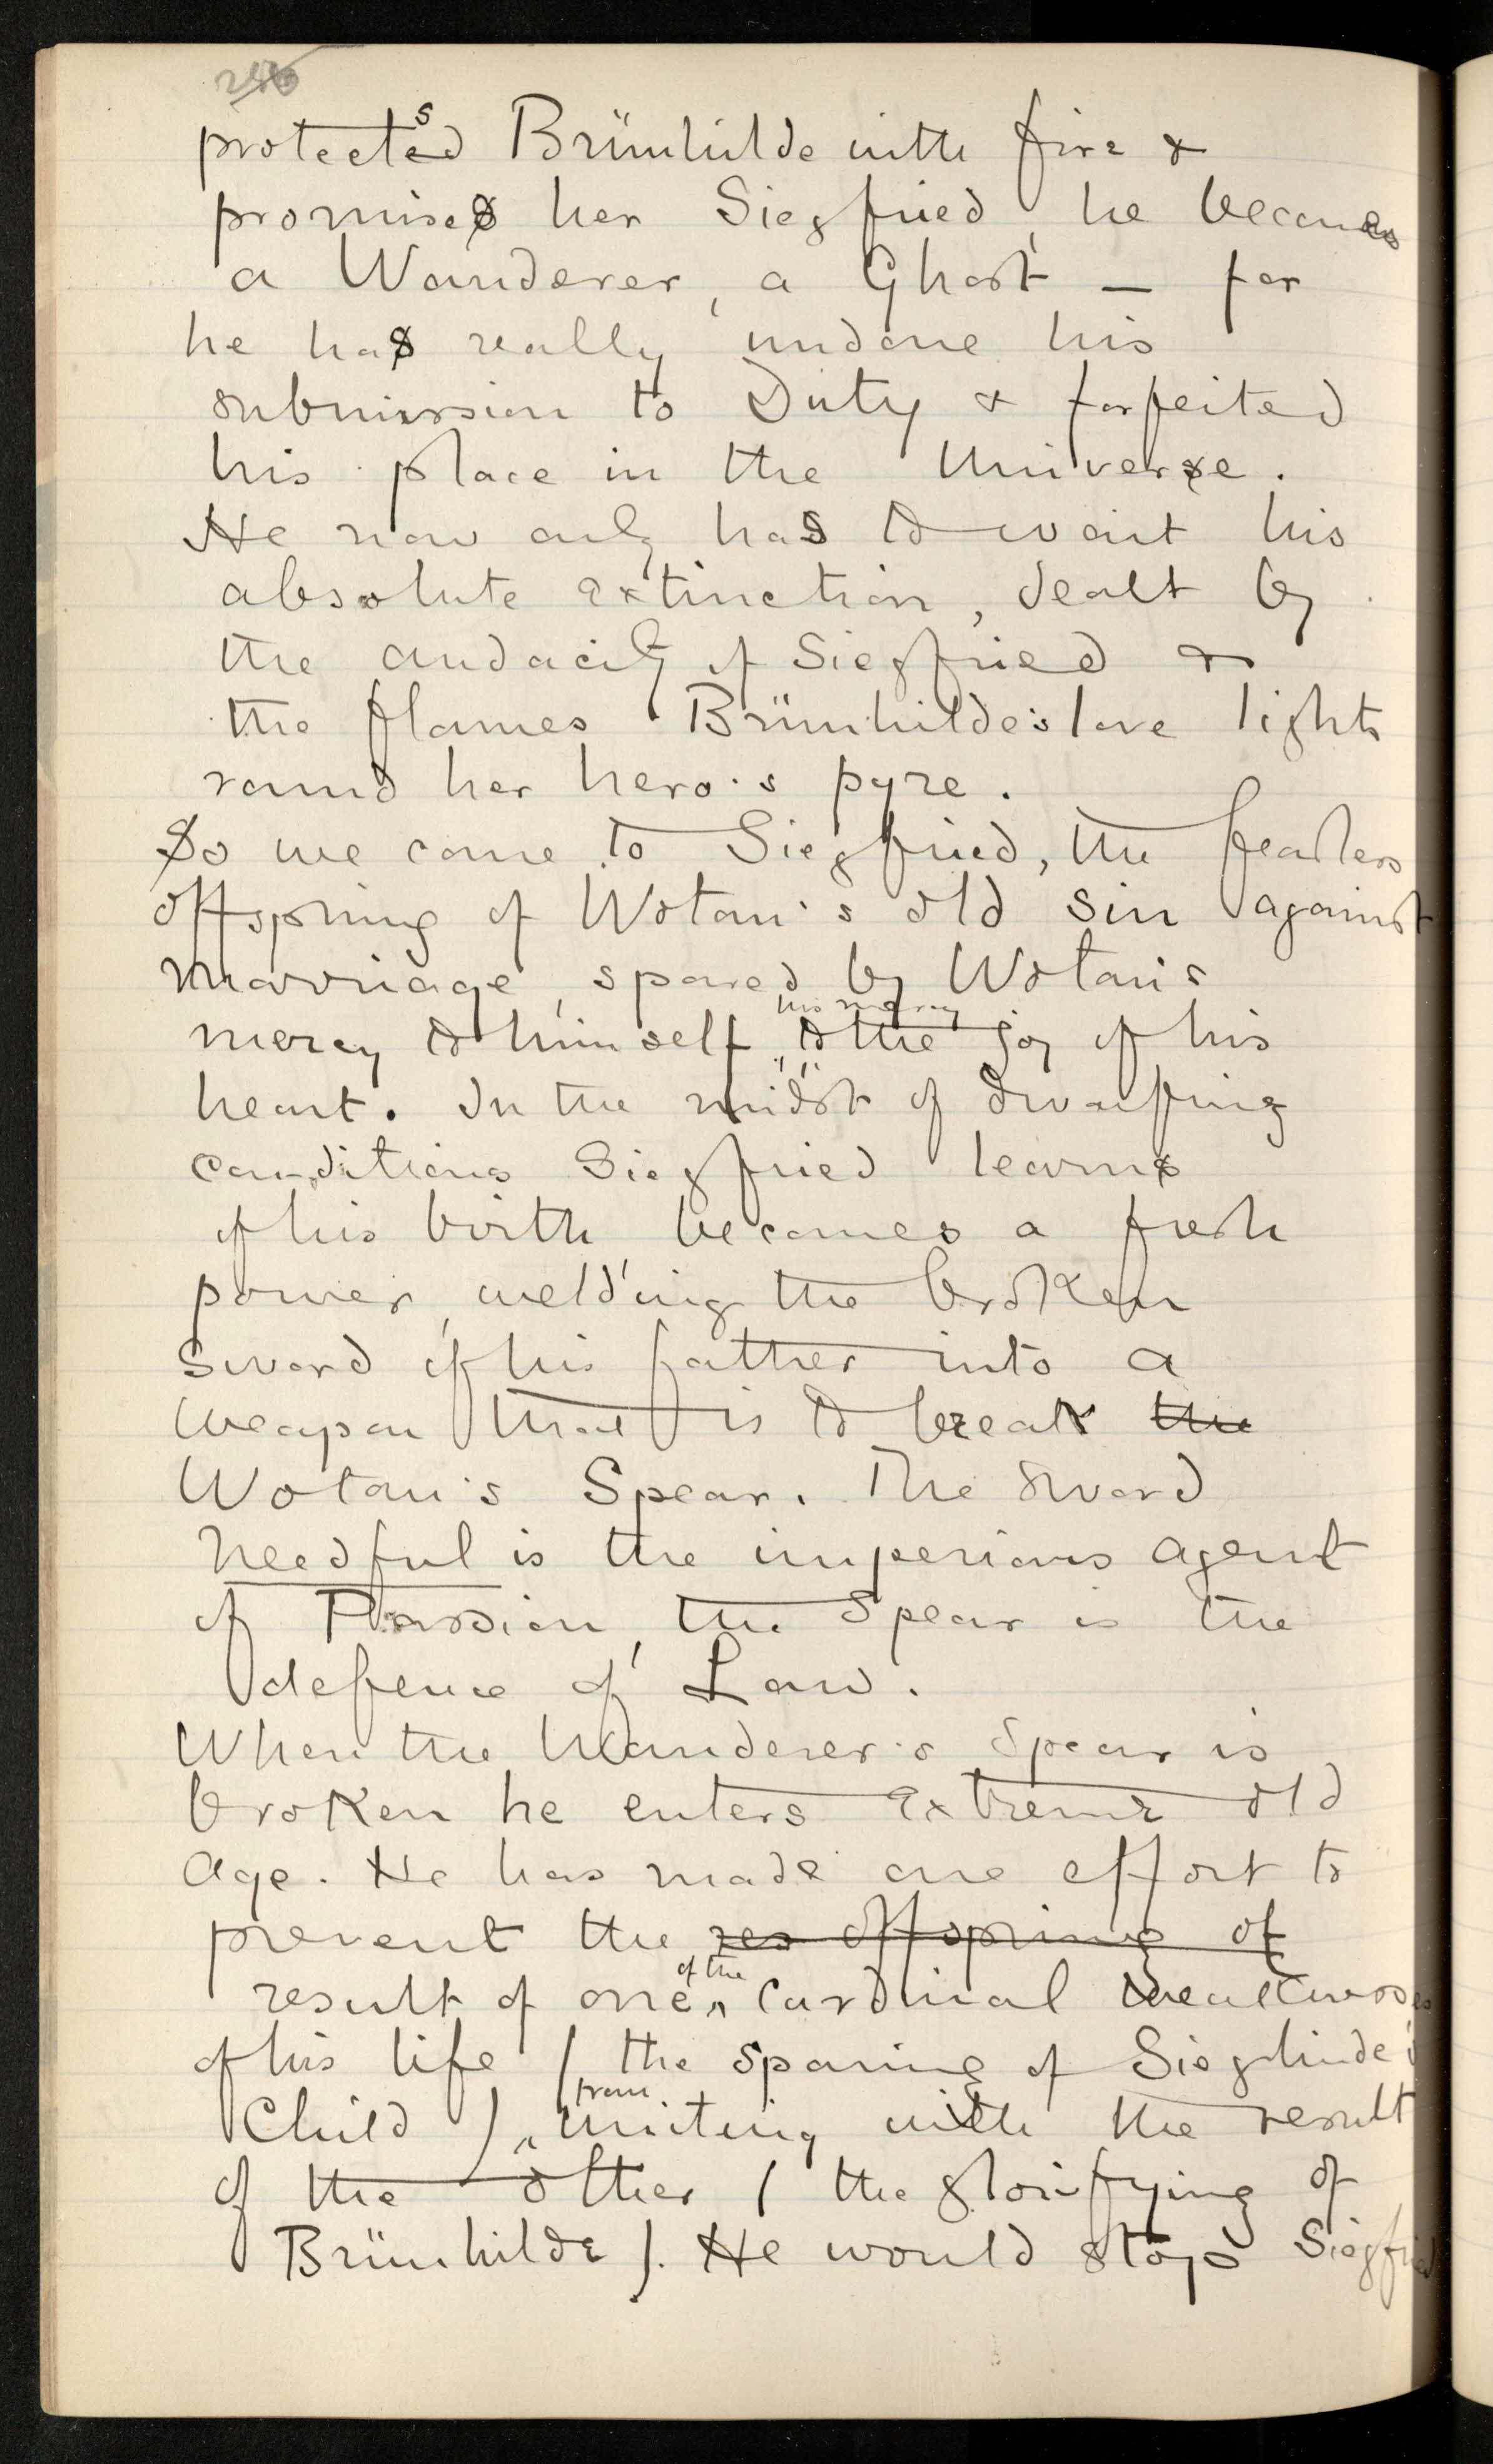 protects Brünhilde with fire &
promises her Siegfried, he becomes
a Wanderer, a Ghost — for
he has really undone his
submission to Duty & forfeited
his place in the Universe.
He now only has to wait his
absolute extinction, dealt by
the audacity of Siegfried &
the flames Brünhilde's love lights
round her hero's pyre.
So we come to Siegfried, the fearless
offspring of Wotan's old sin against
Marriage, spared by Wotan's
mercy to himself, his mercy to the joy of his
heart. In the midst of dwarfing
conditions Siegfried learns
of his birth, becomes a fresh
power, welding the broken
sword of his father into a
weapon that is to break the
Wotan's Spear. The Sword
needful is the imperious agent
of Passion, the Spear is the
defence of Law.
When the Wanderer's Spear is
broken he enters extreme old
age. He has made one effort to
prevent the res offspring of
result of one of the Cardinal weaknesses
of his life (the sparing of Sieglinde's
Child) from uniting with the result
of the other (the glorifying of
Brünhilde). He would stop Siegfried